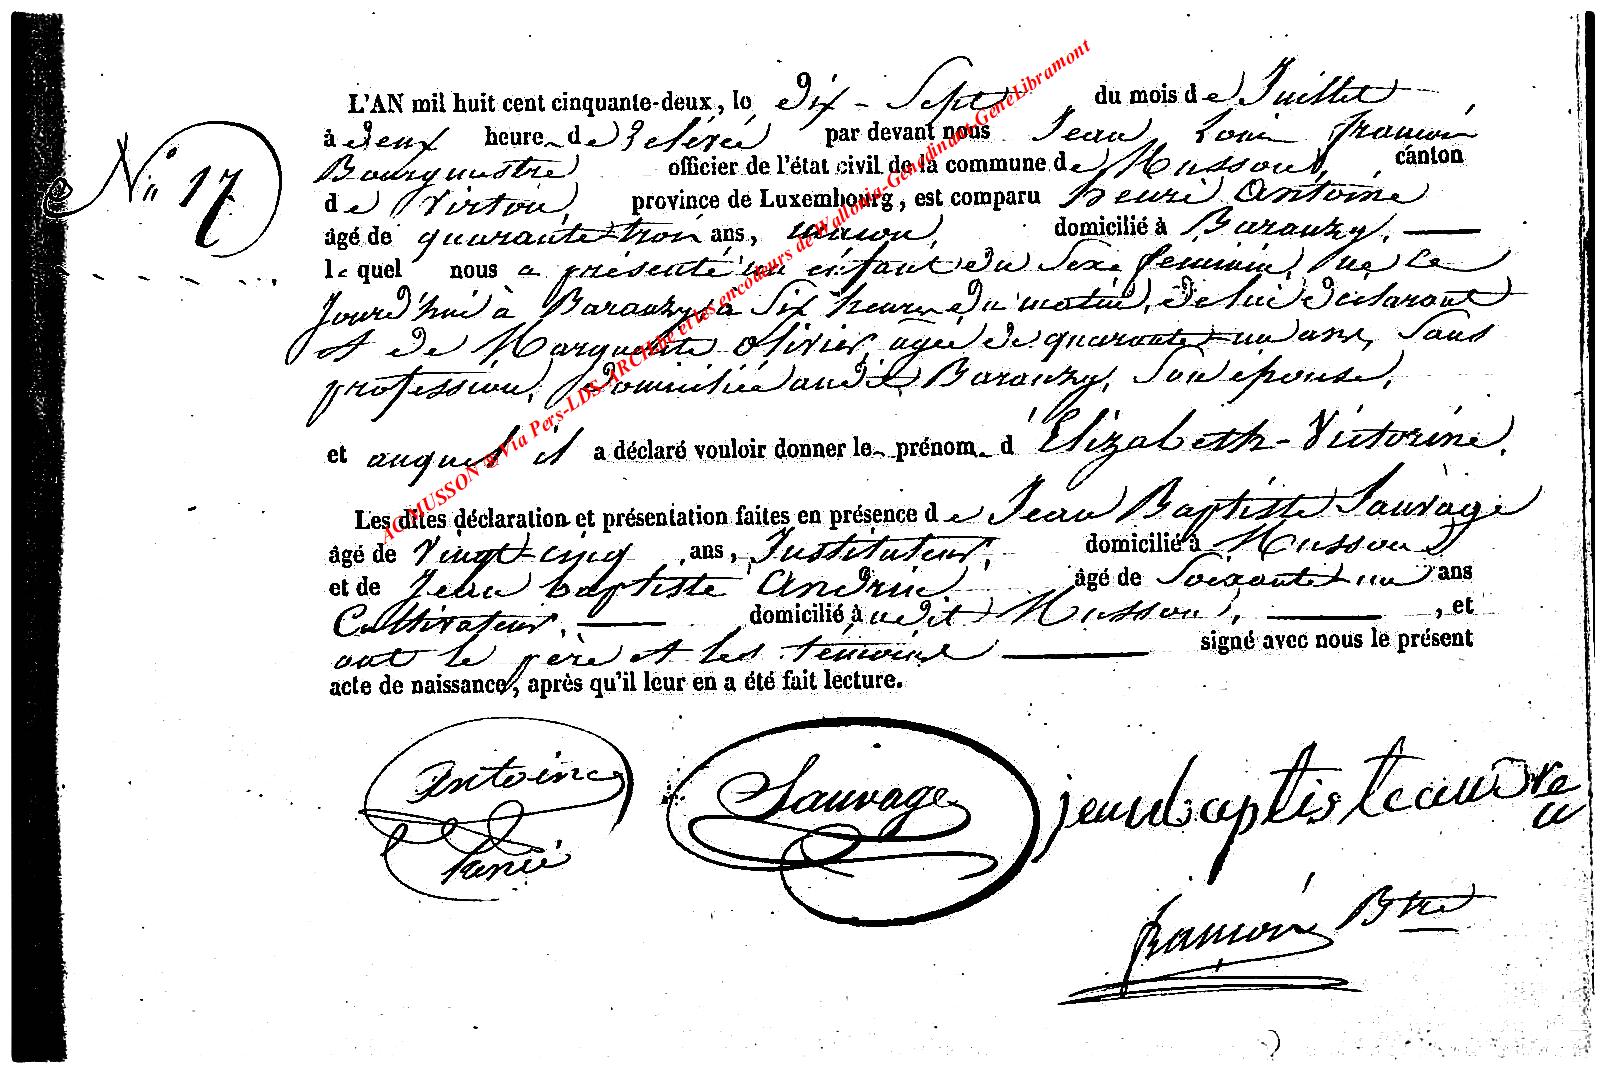 L'AN mil huit cent cinquante-deux, le dix-Sept du mois de Juillet
à deux heure de relevée par devant nous Jean Louis françois
N° 17
Bourgmestre officier de l'état civil de la commune de Musson, canton
de Virton, province de Luxembourg, est comparu henri Antoine
âgé de quarante-trois ans, maçon, domicilié à Baranzy,
le quel nous a présenté un enfant du Sexe féminin, né ce
Jourd'hui à Baranzy à Six heures du matin, de lui déclarant
et de Marguerite olivier, agée de quarante-un ans, Sans
profession, domiciliée audit Baranzy, Son épouse,
et auquel il a déclaré vouloir donner le prénom d'Elizabeth-Victorine.
Les dites déclaration et présentation faites en présence de Jean Baptiste Sauvage
âgé de vingt-cinq ans, Instituteur, domicilié à Musson
et de Jean baptiste Andrin âgé de Soixante-un ans
Cultivateur, domicilié audit Musson, , et
ont le père et les témoins signé avec nous le présent
acte de naissance, après qu'il leur en a été fait lecture.
AC MUSSON via Pers-LDS-ARCH.be et les encodeurs de Wallonia-Genedinant-GeneLibramont
Antoine
henri
Sauvage
jean baptiste andre
françois Btre